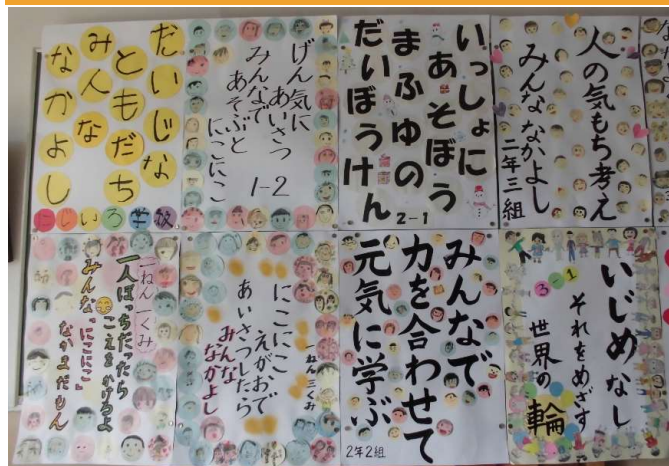 だいじな
ともだち
みんな
なかよし
にじいろ学校
げん気に
あいさつ
みんなで
あそぶと
にこにこ
1-2
いっしょに
あそぼう
まふゆの
だいぼうけん
2-1
人の気もち考え
みんな なかよし
二年三組
一ねん一くみ
一人ぼっちだったら
こえをかけるよ
みんな「にこにこ」
なかまだもん
にこにこ
えがおで
あいさつしたら
みんな
なかよし
一ねん三くみ
みんなで
力を合わせて
元気に学ぶ
2年2組
いじめなし
それをめざす
世界の輪
3-1